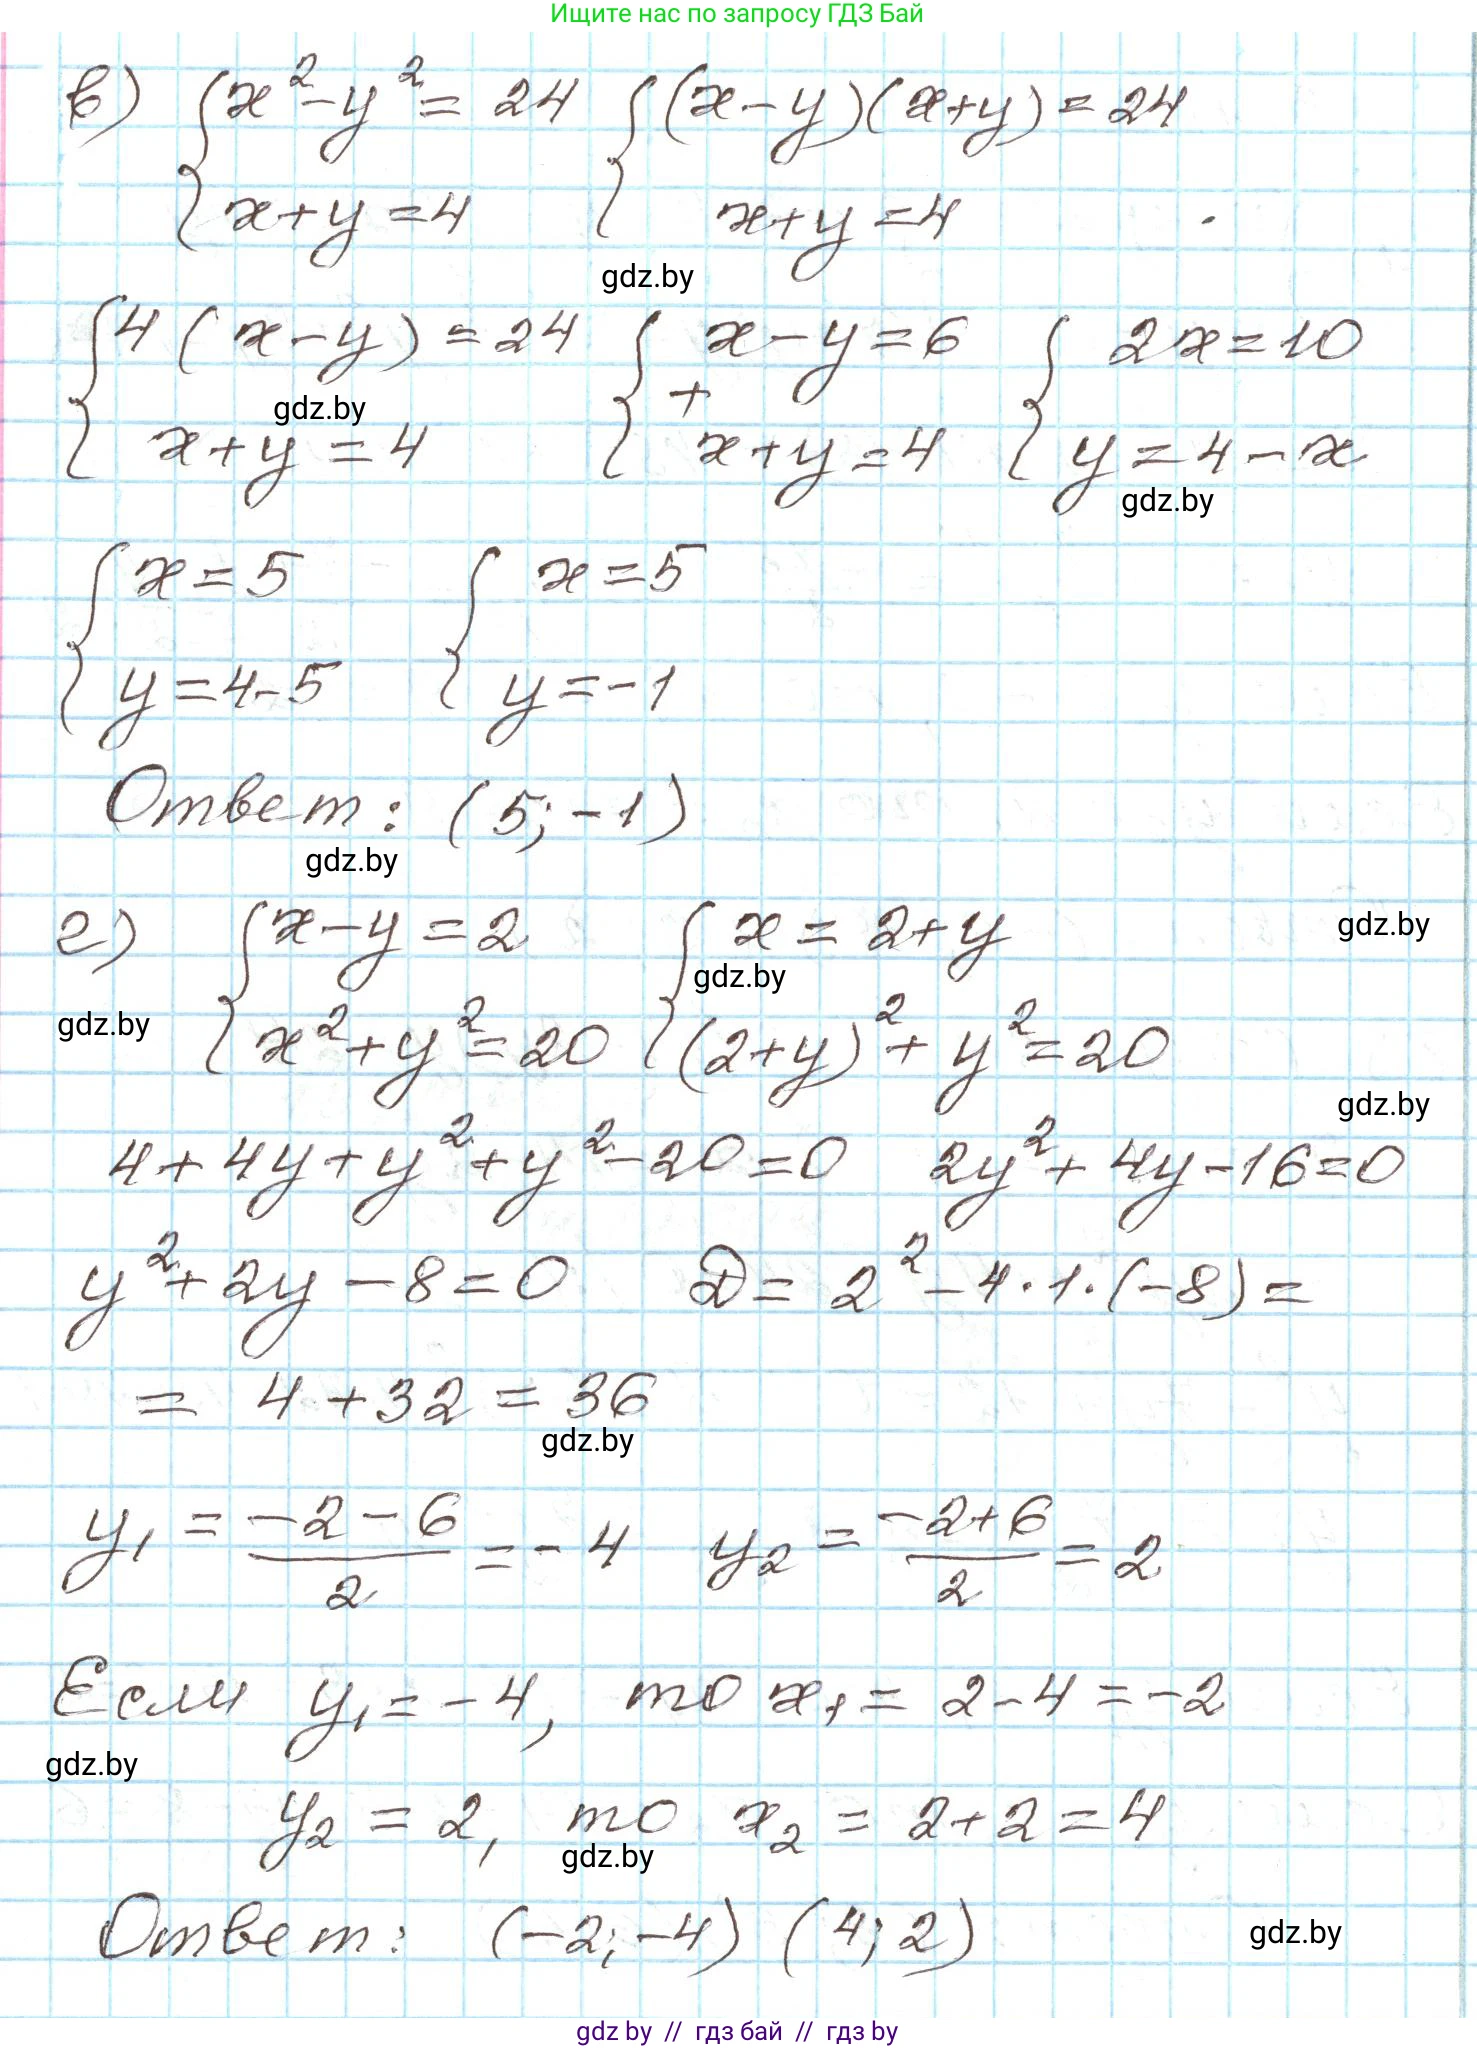 Ищите нас по запросу ГДЗ Бай
в) { x² - y² = 24 { (x - y)(x + y) = 24
x + y = 4 x + y = 4
gdz.by
{ 4(x - y) = 24 { x - y = 6 { 2x = 10
+
gdz.by
x + y = 4 x + y = 4 y = 4 - x
gdz.by
{ x = 5 { x = 5
y = 4 - 5 y = -1
Ответ: (5; -1)
gdz.by
г) { x - y = 2 { x = 2 + y gdz.by
gdz.by
gdz.by
x² + y² = 20 (2 + y)² + y² = 20
gdz.by
4 + 4y + y² + y² - 20 = 0 2y² + 4y - 16 = 0
y² + 2y - 8 = 0 D = 2² - 4·1·(-8) =
= 4 + 32 = 36
gdz.by
y₁ = (-2 - 6)/2 = -4 y₂ = (-2 + 6)/2 = 2
Если y₁ = -4, то x₁ = 2 - 4 = -2
gdz.by
y₂ = 2, то x₂ = 2 + 2 = 4
gdz.by
Ответ: (-2; -4) (4; 2)
gdz.by
gdz by // гдз бай // гдз by